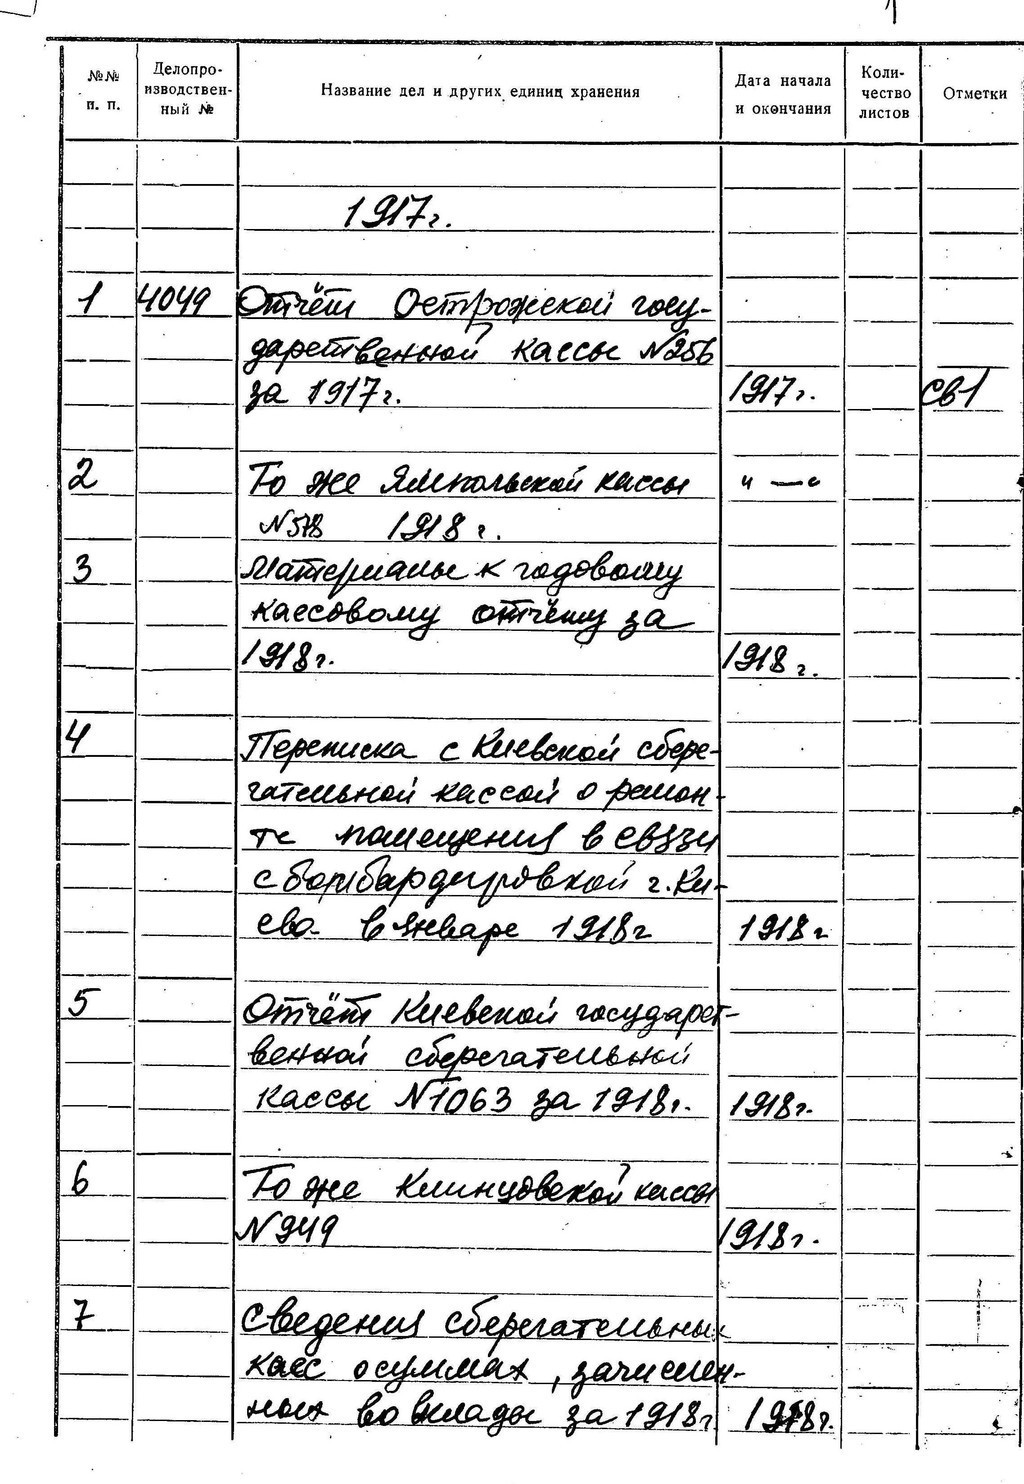 1
№№ п. п.
Делопро-изводствен-ный №
Название дел и других единиц хранения
Дата начала и окончания
Коли-чество листов
Отметки
1917г.
1 4049 Отчёт Острожской госу-
дарственной кассы N256
за 1917г. 1917г. св1
2 То же Ямпольской кассы " — "
N578 1918г.
3 Материалы к годовому
кассовому отчёту за
1918г. 1918г.
4 Переписка с Киевской сбере-
гательной кассой о ремон-
те помещения в связи
с бомбардировкой г. Ки-
ева в январе 1918г 1918г
5 Отчёт Киевской государст-
венной сберегательной
кассы N1063 за 1918г. 1918г.
6 То же Клинцовской кассы
N949 1918г.
7 Сведения сберегательных
касс о суммах, зачислен-
ных во вклады за 1918г 1918г.